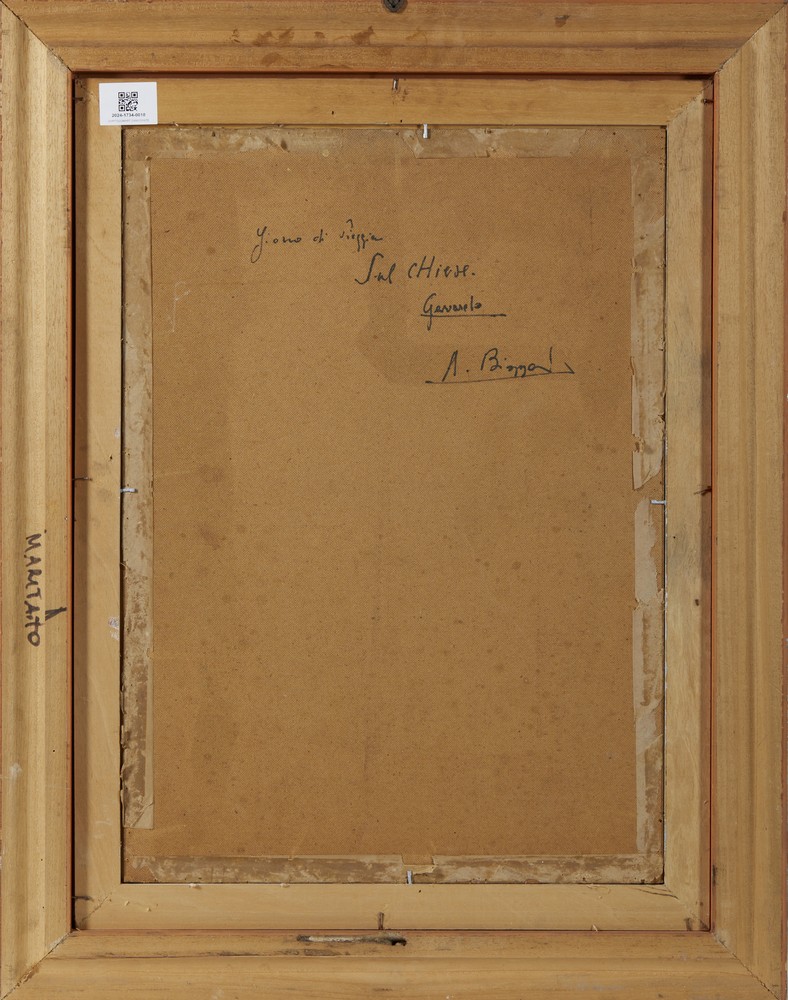 2024-5734-0010
Giorno di pioggia
Sul CHiese.
Gavardo
A.
MARTATO